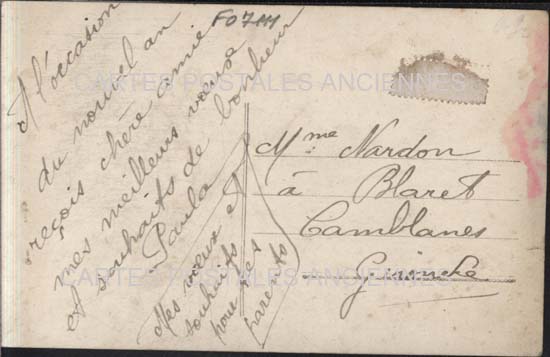 A l'occasion
du nouvel an
reçois chère amie
mes meilleurs vœux
et souhaits de bonheur
Paula
Mes vœux et
souhaits
pour tes
parents
FO7111
Mme Nardon
à Blaret
Camblanes
Gironde
CARTES POSTALES ANCIENNES
CARTES POSTALES ANCIENNES